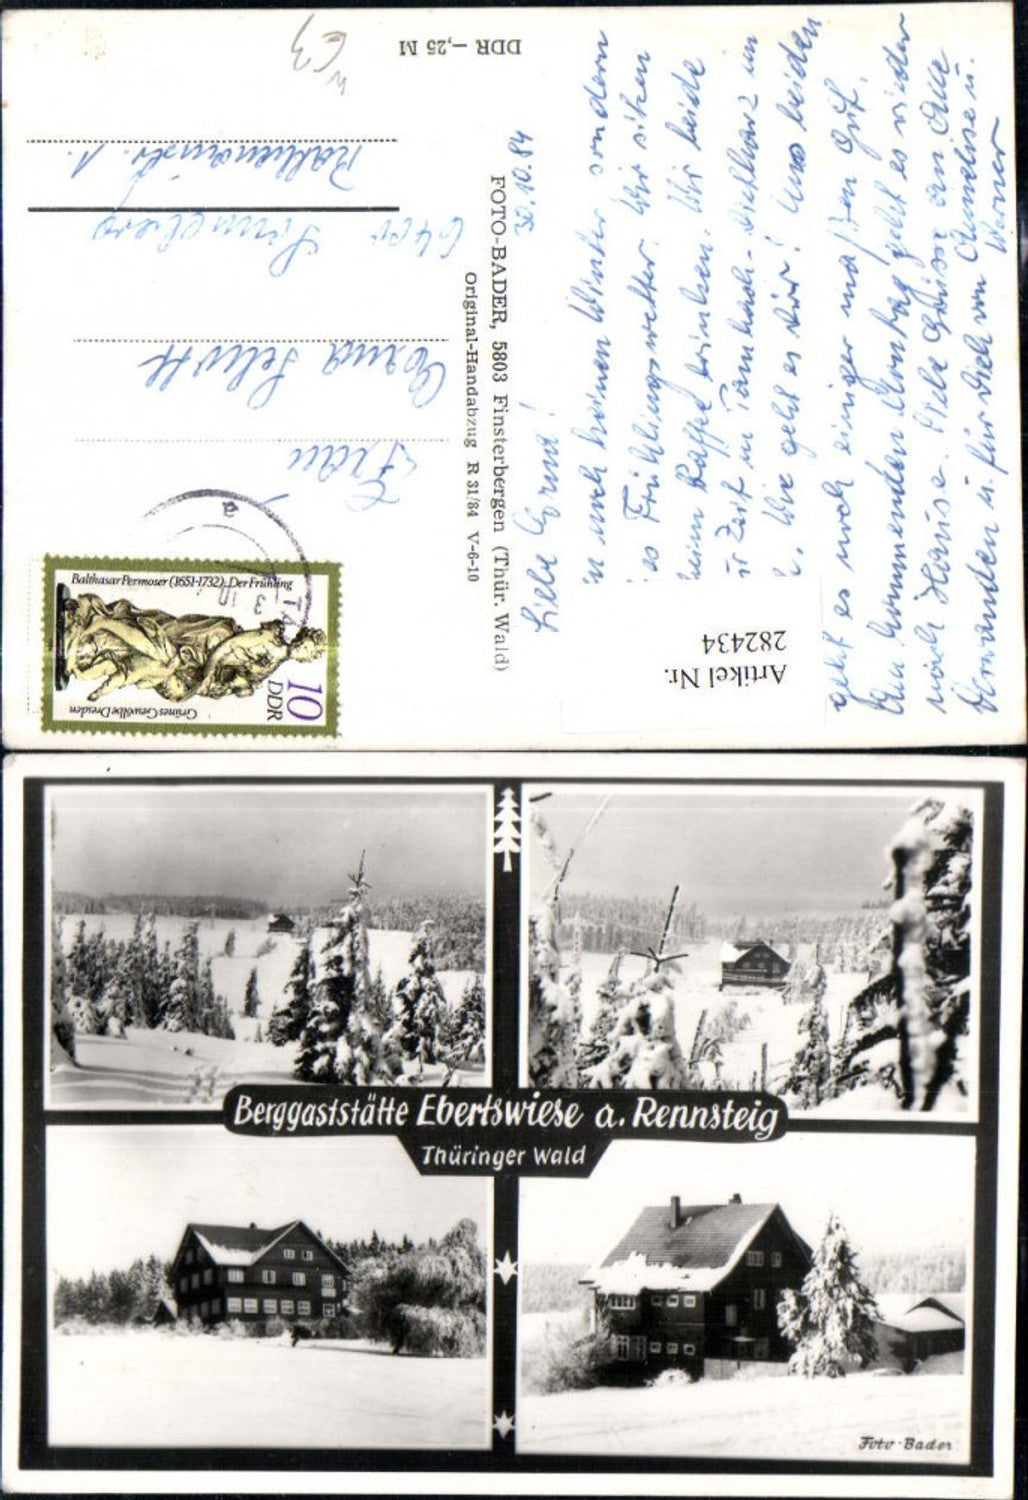 DDR –,25 M
30.10.84
Liebe Erna!
noch keinen Winter sondern
Frühlingswetter. Wir sitzen
beim Kaffee trinken. Wir beide
Zeit in Tambach-Dietharz im
Wie geht es Dir? Uns beiden
geht es noch einiger maßen gut.
Am kommenden Montag geht es wieder
nach Hause. Viele Grüße an alle
Verwandten u. für Dich von Annelise u.
Werner
FOTO-BADER, 5803 Finsterbergen (Thür. Wald)
Original-Handabzug R 31/84 V-6-10
Frau
Erna
6400
1.
Balthasar Permoser (1651-1732): Der Frühling
10
DDR
Grünes Gewölbe Dresden
Artikel Nr.
282434
Berggaststätte Ebertswiese a. Rennsteig
Thüringer Wald
Foto-Bader